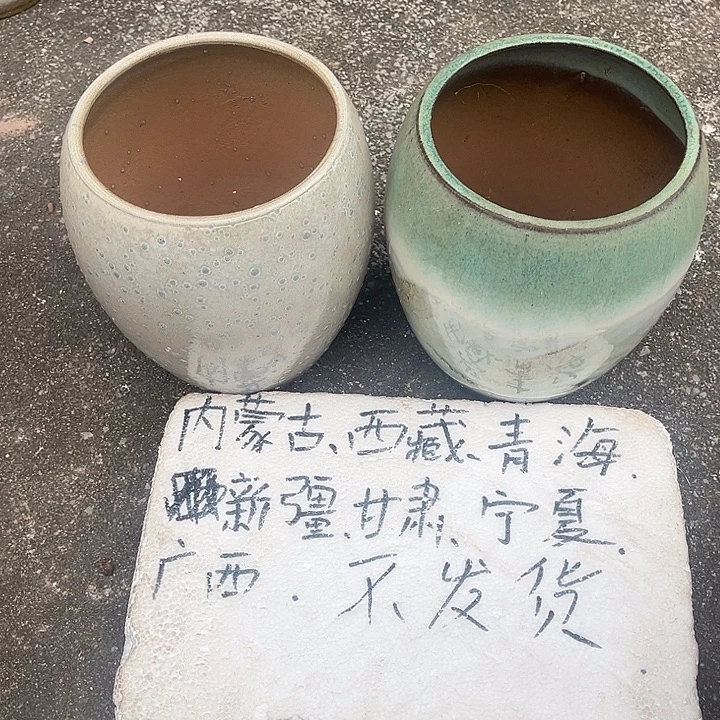 内蒙古、西藏、青海、
新疆、甘肃、宁夏、
广西．不发货